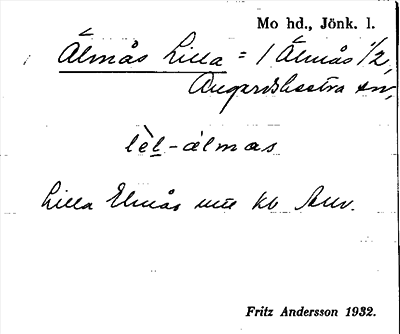 Mo hd., Jönk. l.
Älmås Lilla = 1 Älmås 1/2,
Angerdshestra sn,
lèl-álmas
Lilla Elmås
Fritz Andersson 1932.